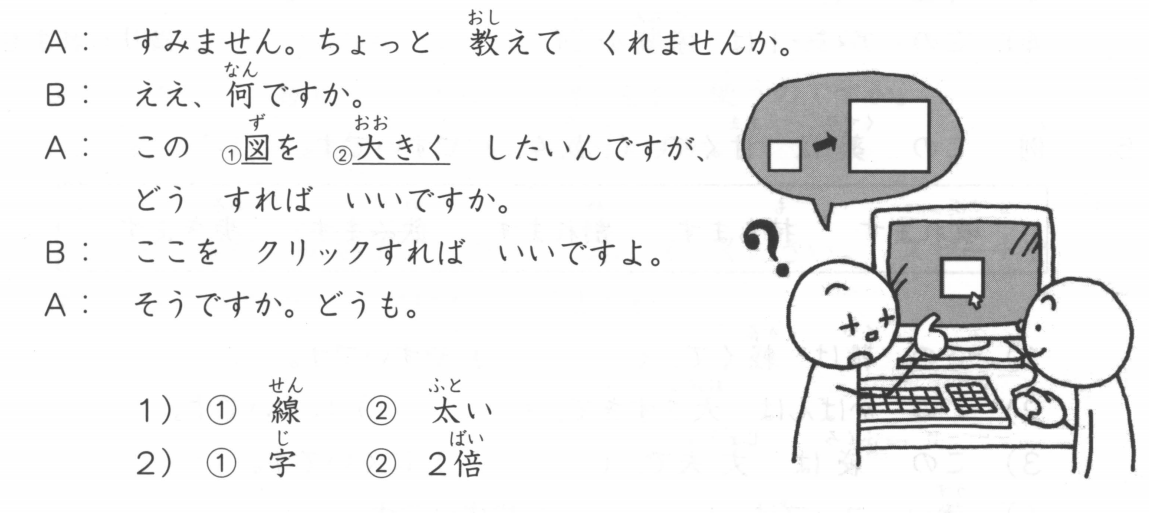 A： すみません。ちょっと 教えて くれませんか。
B： ええ、何ですか。
A： この ①図を ②大きく したいんですが、
どう すれば いいですか。
B： ここを クリックすれば いいですよ。
A： そうですか。どうも。
1） ① 線 ② 太い
2） ① 字 ② 2倍